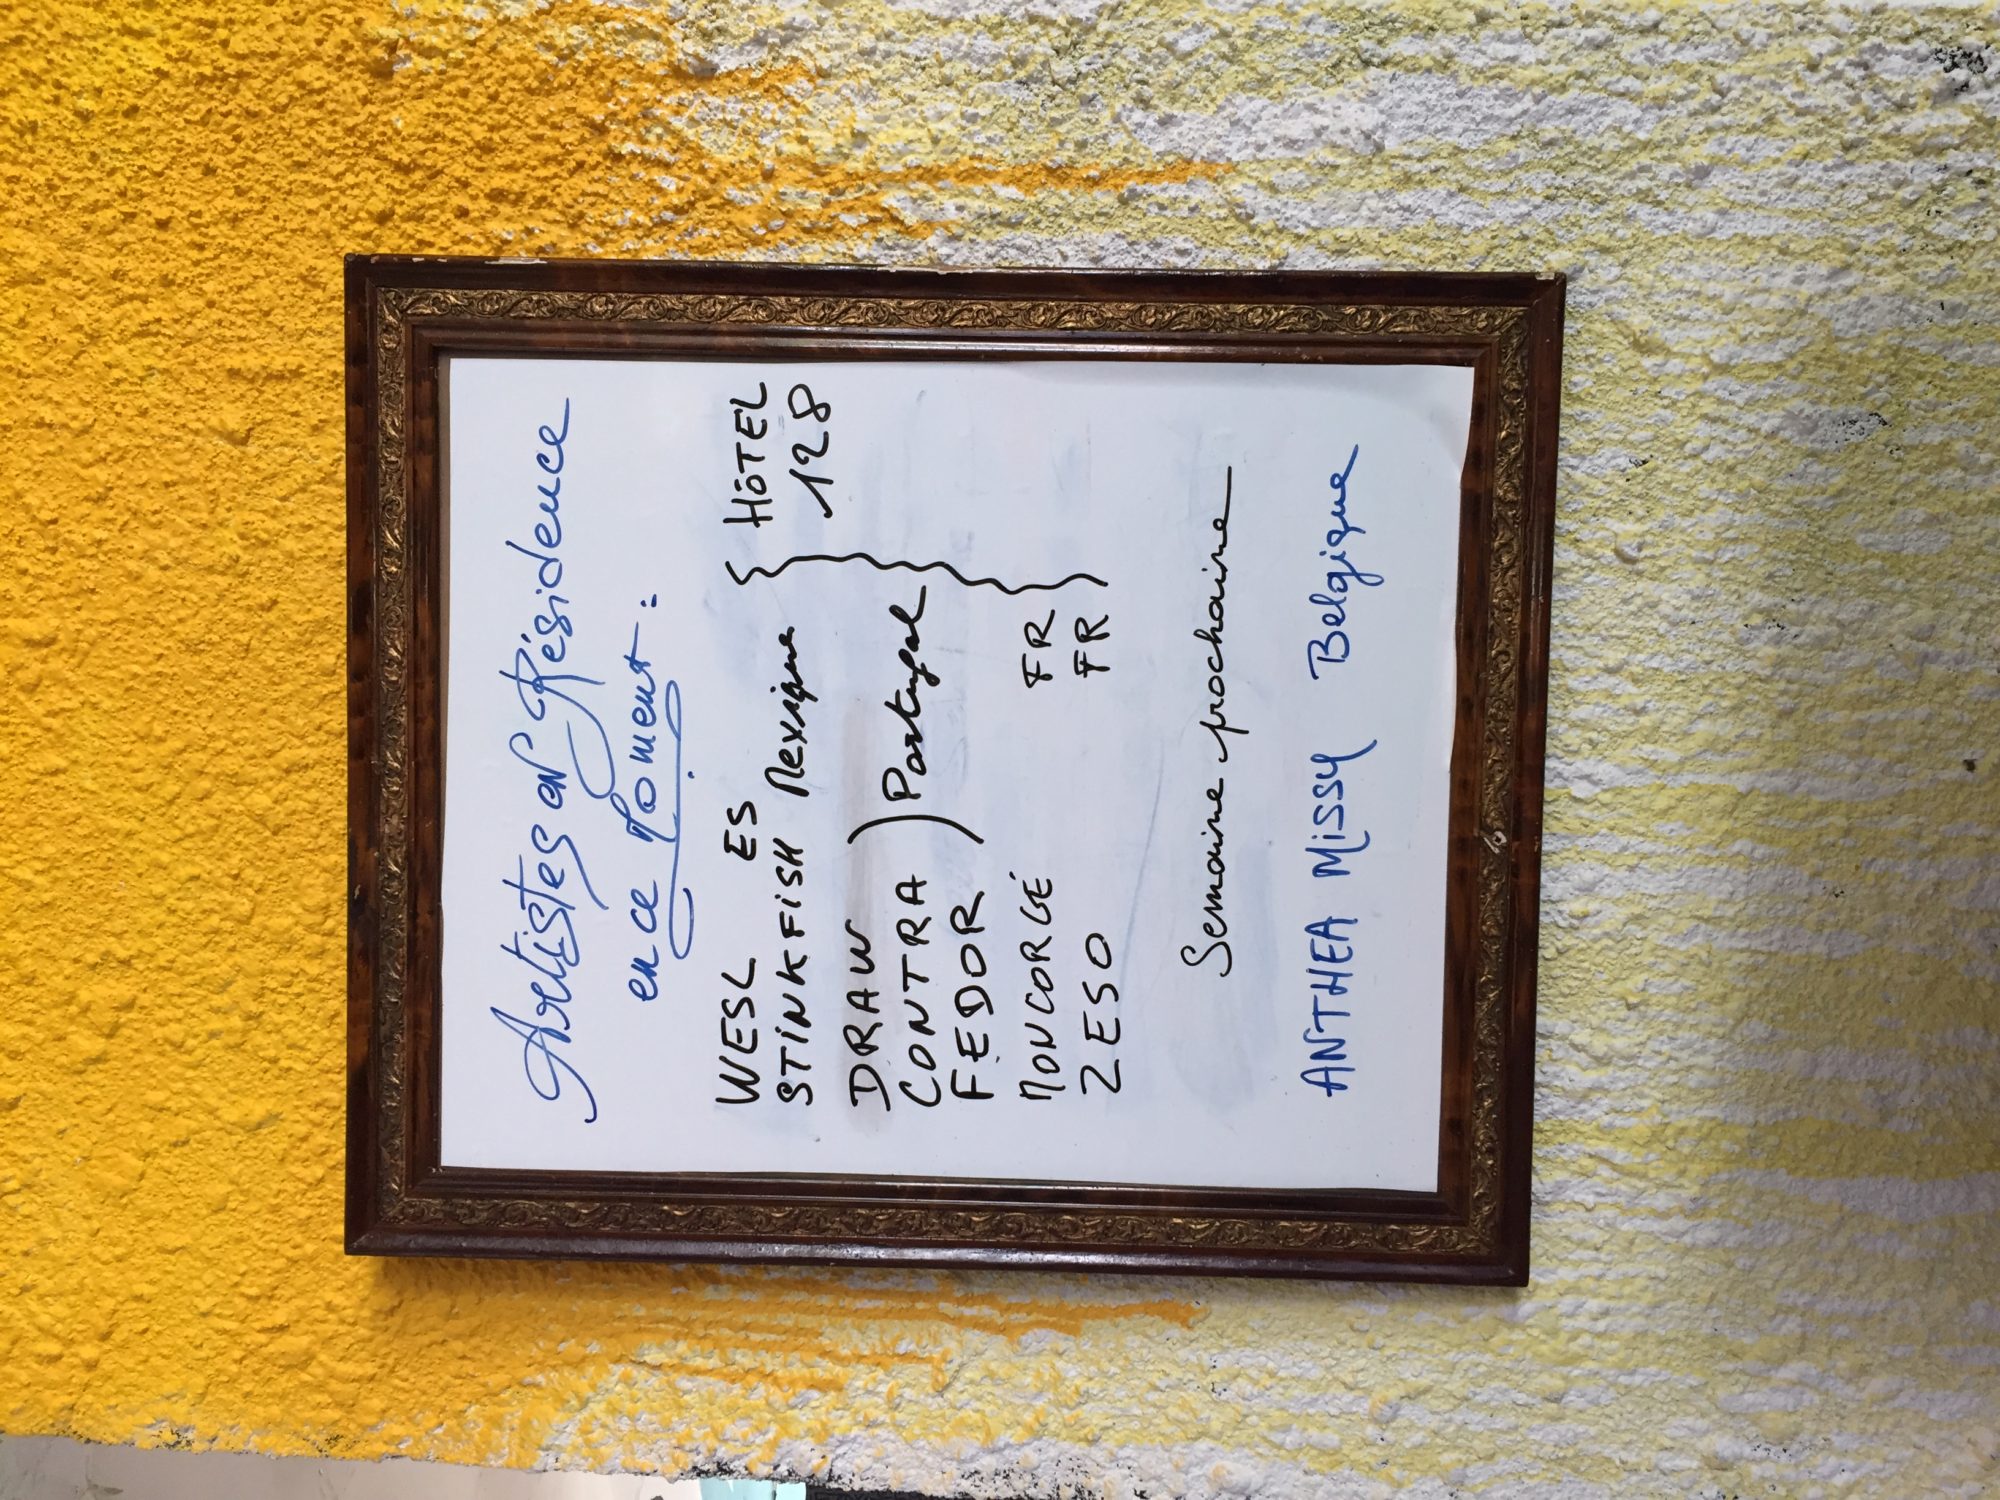 Artistes en Résidence
en ce Moment :
WESL ES HÔTEL
STINKFISH Mexique 128
DRAW
CONTRA Portugal
FEDOR
MONCORGÉ FR
ZESO FR
Semaine prochaine
ANTHEA MISSY Belgique